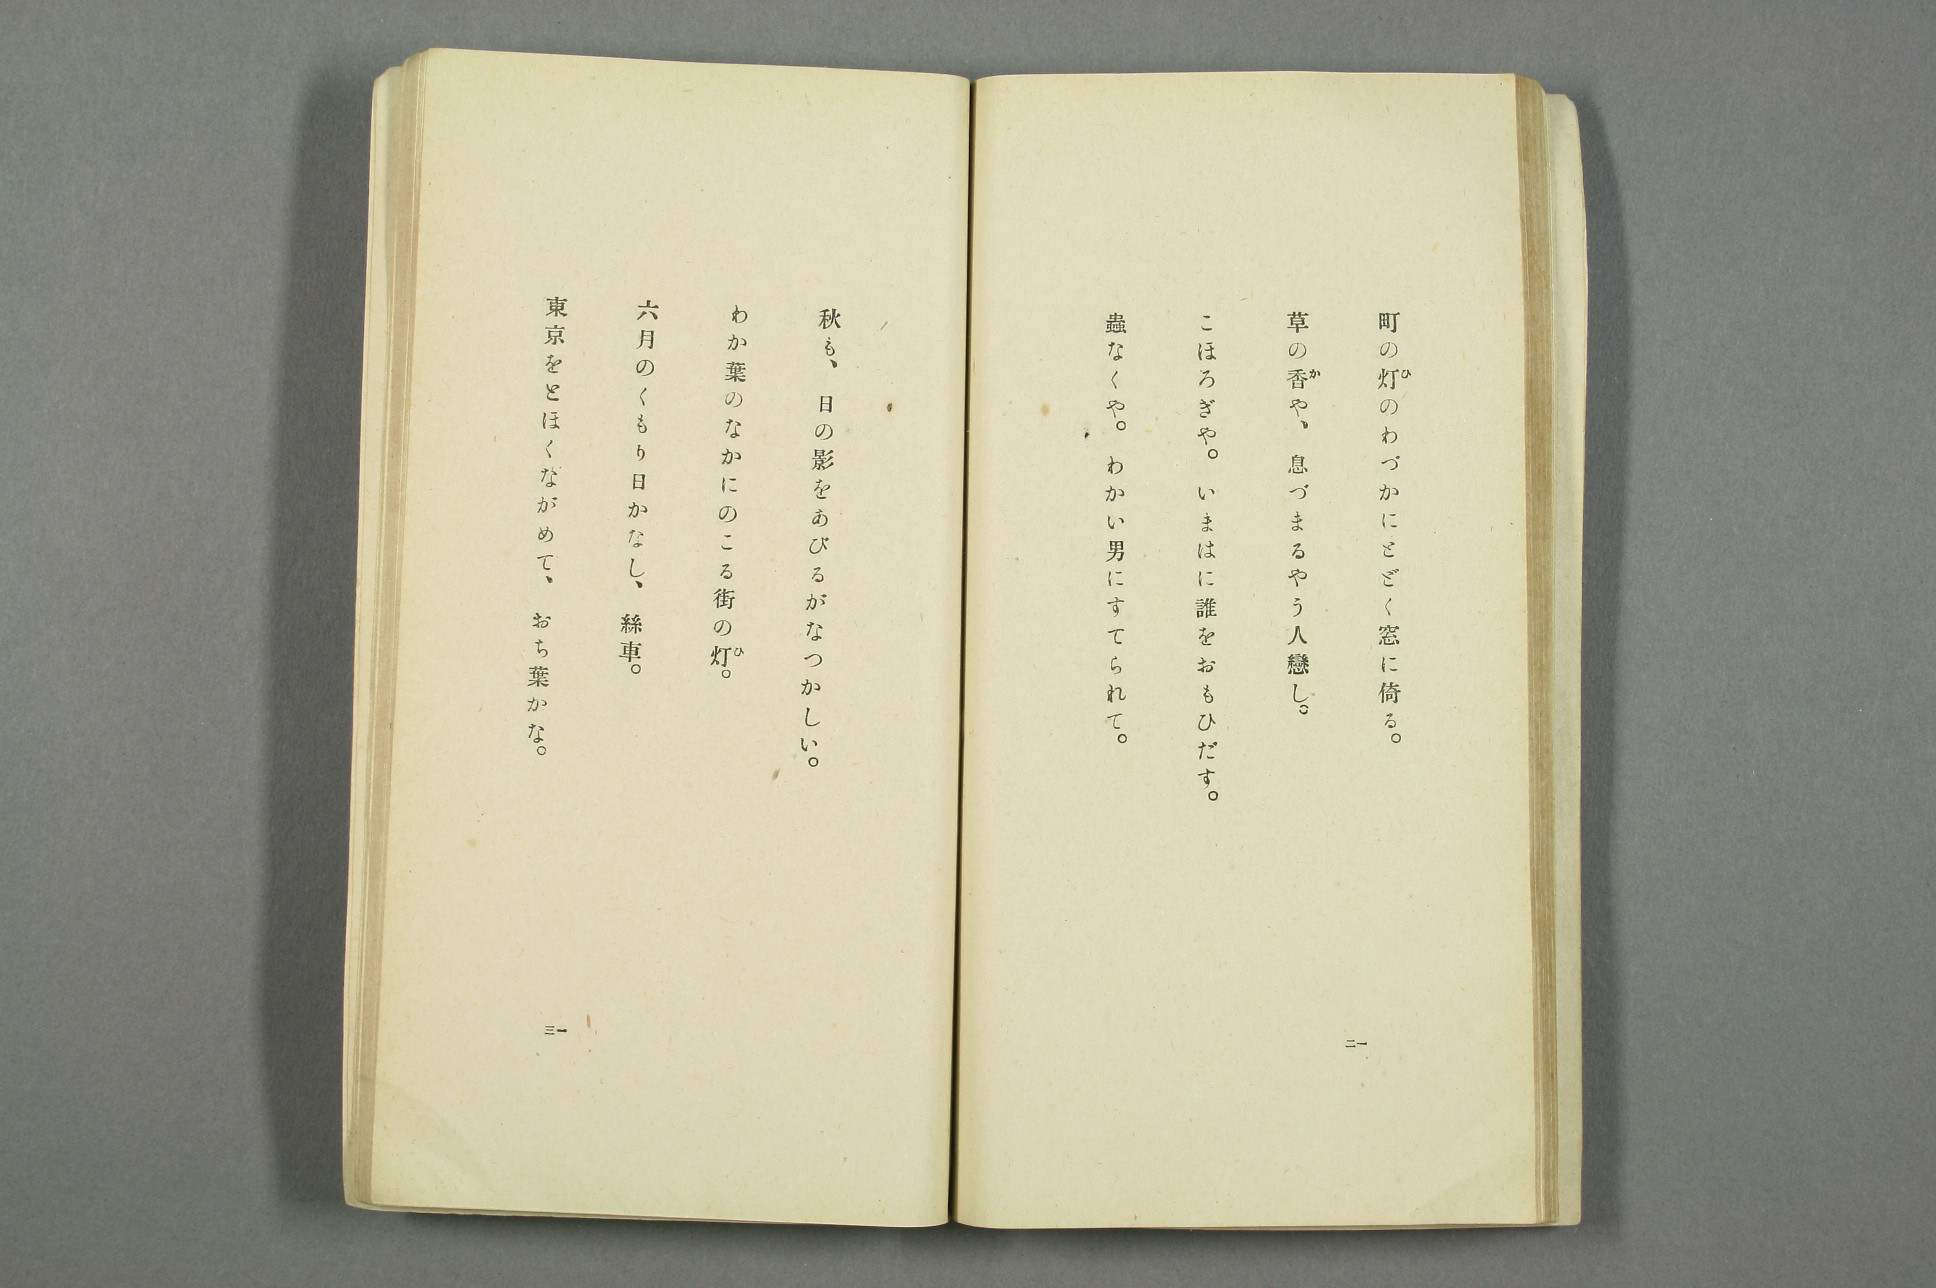 町の灯のわづかにとどく窓に倚る。
草の香や、息づまるやう人戀し。
こほろぎや。いまはに誰をおもひだす。
蟲なくや。わかい男にすてられて。
一二
秋も、日の影をあびるがなつかしい。
わか葉のなかにのこる街の灯。
六月のくもり日かなし、絲車。
東京をとほくながめて、おち葉かな。
一三